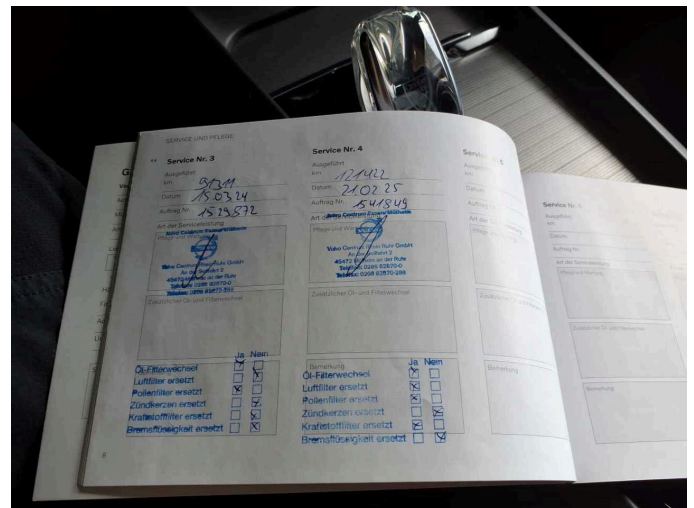 SERVICE UND PFLEGE
Service Nr. 3
Ausgeführt
km 91311
Datum 15.03.24
Auftrag Nr. 1529572
Art der Serviceleistung
Pflege und Wartung
Volvo Centrum Essen/Mülheim
Volvo Centrum Rhein Ruhr GmbH
An der Seilfahrt 2
45472 Mülheim an der Ruhr
Telefon: 0208 82870-0
Zusätzlicher Öl- und Filterwechsel
Ja Nein
Öl-Filterwechsel
Luftfilter ersetzt
Pollenfilter ersetzt
Zündkerzen ersetzt
Kraftstofffilter ersetzt
Bremsflüssigkeit ersetzt
6
Service Nr. 4
Ausgeführt
km 121422
Datum 21.02.25
Auftrag Nr. 1541849
Art der
Volvo Centrum Essen/Mülheim
Pflege und Wartung
Volvo Centrum Rhein Ruhr GmbH
An der Seilfahrt 2
45472 Mülheim an der Ruhr
Telefon: 0208 82870-0
Telefax: 0208 82870-298
Zusätzlicher Öl- und Filterwechsel
Bemerkung
Ja Nein
Öl-Filterwechsel
Luftfilter ersetzt
Pollenfilter ersetzt
Zündkerzen ersetzt
Kraftstofffilter ersetzt
Bremsflüssigkeit ersetzt
Service
Ausgeführt
km
Datum
Auftrag Nr.
Art der
Pflege und
Zusätzlicher Öl- und
Bemerkung
Service Nr.
Ausgeführt
km
Datum
Auftrag Nr.
Art der Serviceleistung
Pflege und Wartung
Zusätzlicher Öl- und Filterwechsel
Bemerkung